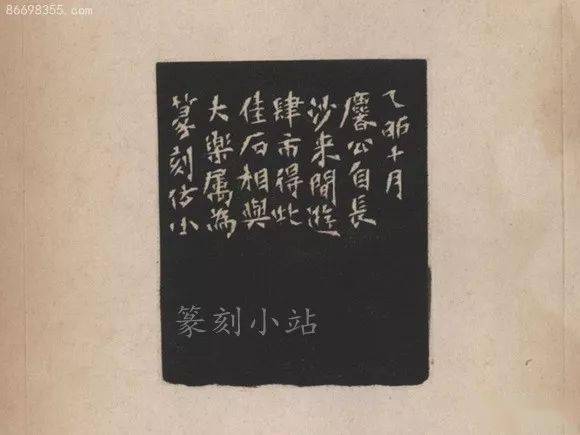 86698355.com
乙十月
麐公自長
沙来閒遊
肆市得此
佳石相與
大樂属為
篆刻仿小
篆刻小站